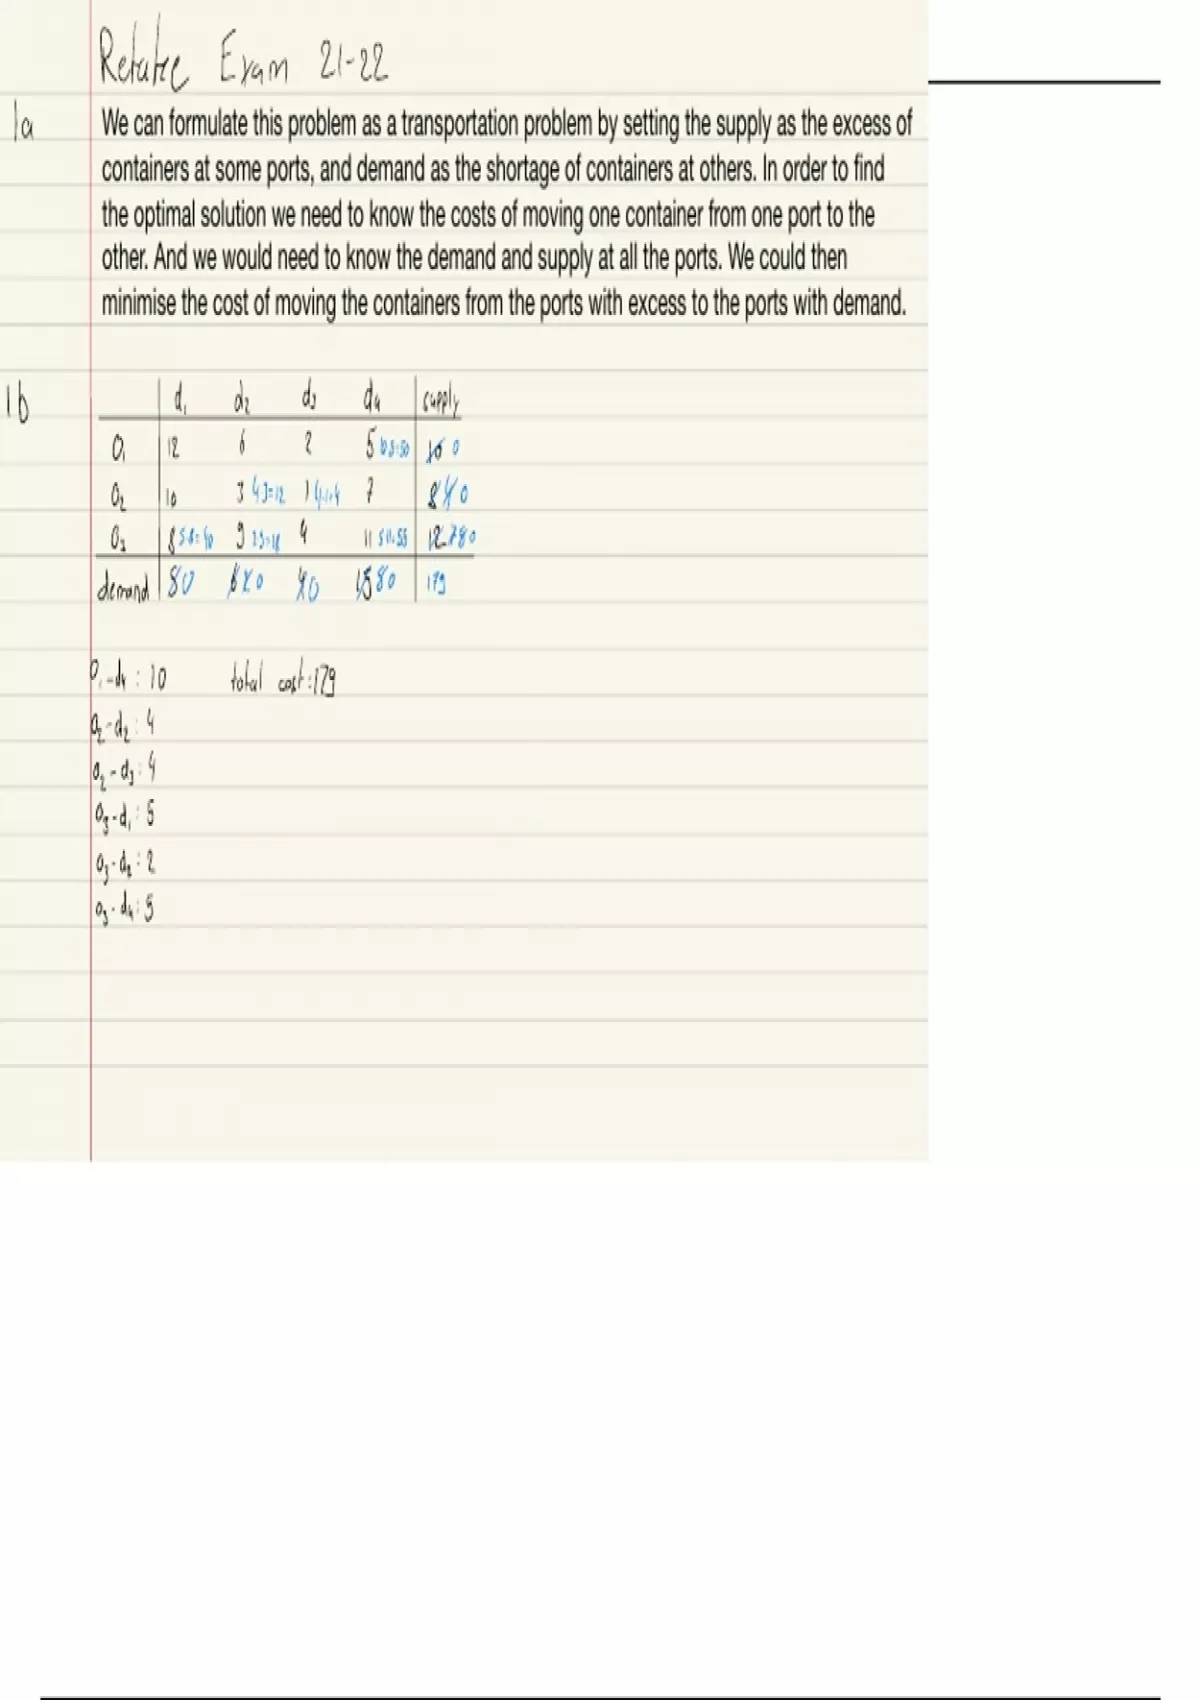 Retake Exam 21-22
1a
We can formulate this problem as a transportation problem by setting the supply as the excess of
containers at some ports, and demand as the shortage of containers at others. In order to find
the optimal solution we need to know the costs of moving one container from one port to the
other. And we would need to know the demand and supply at all the ports. We could then
minimise the cost of moving the containers from the ports with excess to the ports with demand.
1b
d₁ d₂ d₃ d₄ supply
O₁ 12 6 2 5 10·5=50 10 0
O₂ 10 3 4·3=12 1 4·1=4 7 8 4 0
O₃ 8 5·8=40 9 2·9=18 4 11 5·11=55 12 7 0
demand 5 0 6 2 0 4 0 15 0 179
O₁-d₄: 10 total cost: 179
O₂-d₂: 4
O₂-d₃: 4
O₃-d₁: 5
O₃-d₂: 2
O₃-d₄: 5